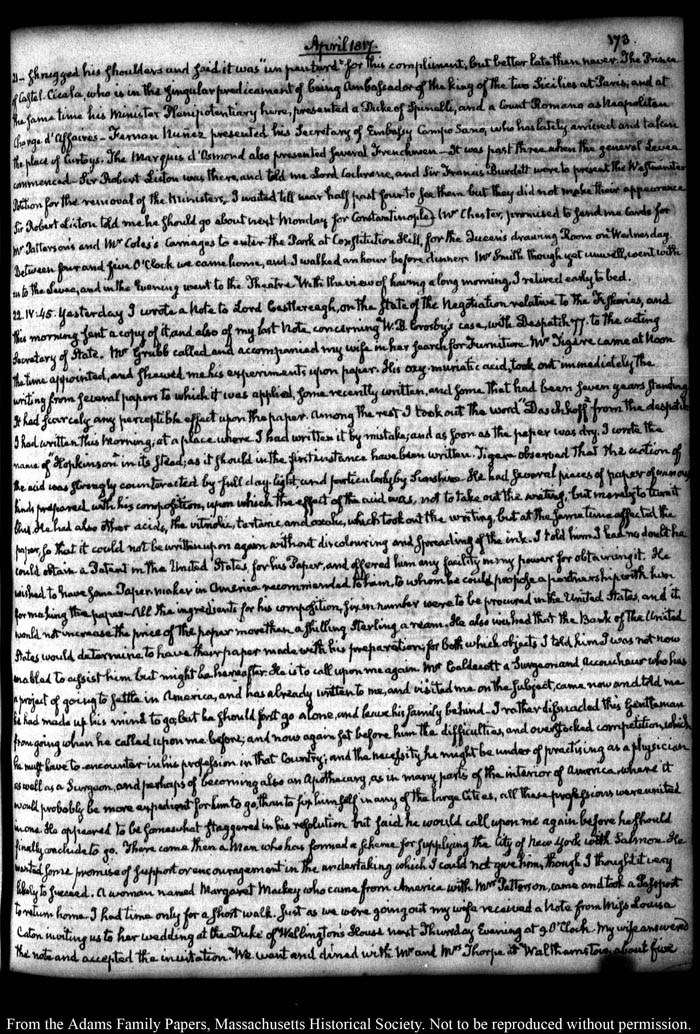 April 1817.
173
21 — shrugged his shoulders and said it was "un peu tard" for this compliment, but better late then never. The Prince
of Castel-Cicala who is in the singular predicament of being Ambassador of the king of the two Sicilies at Paris, and at
the same time his Minister Plenipotentiary here, presented a Duke of Spinelli, and a Count Romano as Neapolitan
Charge d'Affaires — Fernan Nuñez presented his Secretary of Embassy Campo Sano, who has lately arrived and taken
the place of Curtoys. The Marquis d'Osmond also presented several Frenchmen — It was past three when the general Levee
commenced — Sir Robert Liston was there, and told me Lord Cochrane, and Sir Francis Burdett were to present the Westminster
Petition for the removal of the Ministers, I waited till near half past four to see them but they did not make their appearance
Sir Robert Liston told me he should go about next Monday for Constantinople) Mr Chester, promised to send me Cards for
Mr Patterson's and Mr Coles's Carriages to enter the Park at Constitution Hill, for the Queen's drawing Room on Wednesday.
Between four and five O'Clock we came home, and I walked an hour before dinner. Mr Smith though yet unwell, went with
us to the Levee, and in the Evening went to the Theatre. With the view of having a long morning, I retired early to bed.
22. IV:45. Yesterday I wrote a Note to Lord Castlereagh, on the State of the Negotiation relative to the Fisheries, and
this morning sent a copy of it and also of my last Note, concerning W. B. Crosby's case, with Despatch 77. to the acting
Secretary of State. Mr Grubb called and accompanied my wife in her search for Furniture. Mr Tigere came at Noon
the time appointed, and shewed me his experiments upon paper. His oxy-muriatic acid, took out immediately the
writing from several papers to which it was applied, some recently written, and some that had been seven years standing
It had scarcely any perceptible effect upon the paper. Among the rest I took out the word "Daschkoff" from the despatch
I had written this morning; at a place where I had written it by mistake; and as soon as the paper was dry. I wrote the
name of "Hopkinson" in its stead; as it should in the first instance have been written. Tigere observed that the action of
the acid was strongly counteracted by full day light and particularly by Sunshine. He had several pieces of paper of various
kinds prepared with his composition, upon which the effect of the acid was, not to take out the writing, but merely to turn it
blue. He had also other acids, the vitriolic, tartaric, and oxalic, which took out the writing but at the same time affected the
paper, so that it could not be written upon again without discolouring and spreading of the ink. I told him I had no doubt he
could obtain a Patent in the United States, for his Paper, and offered him any facility in my power for obtaining it. He
wished to have some Paper maker in America recommended to him, to whom he could propose a partnership with him
for making the paper — All the ingredients for his composition, six in number were to be procured in the United States, and it
would not increase the price of the paper more than a shilling Sterling a ream. He also wished that the Bank of the United
States would determine to have their paper made with his preparation; for both which objects I told him I was not now
enabled to assist him but might be hereafter. He is to call upon me again. Mr Caldecott a Surgeon and Accoucheur who has
a project of going to settle in America, and has already written to me, and visited me on the subject, came now and told me
he had made up his mind to go; but he should first go alone, and leave his family behind — I rather dissuaded this Gentleman
from going when he called upon me before; and now again set before him the difficulties, and overstocked competition, which
he must have to encounter in his profession in that Country; and the necessity he might be under of practising as a physician
as well as a Surgeon, and perhaps of becoming also an Apothecary, as in many parts of the interior of America, where it
would probably be more expedient for him to go, than to fix himself in any of the large Cities, all these professions were united
in one. He appeared to be somewhat staggered in his resolution but said he would call upon me again before he should
finally conclude to go. There came then a Man who has formed a scheme for supplying the City of New York with Salmon. He
wanted some promise of support or encouragement in the undertaking which I could not give him, though I thought it very
likely to succeed. A woman named Margaret Mackey who came from America with Mrs Patterson, came and took a Passport
to return home. I had time only for a short walk. Just as we were going out my wife received a Note from Miss Louisa
Caton inviting us to her wedding at the Duke of Wellington's House next Thursday Evening at 9. O'Clock. My wife answered
the note and accepted the invitation. We went and dined with Mr and Mrs Thorpe at Walthamstow, about five
From the Adams Family Papers, Massachusetts Historical Society. Not to be reproduced without permission.